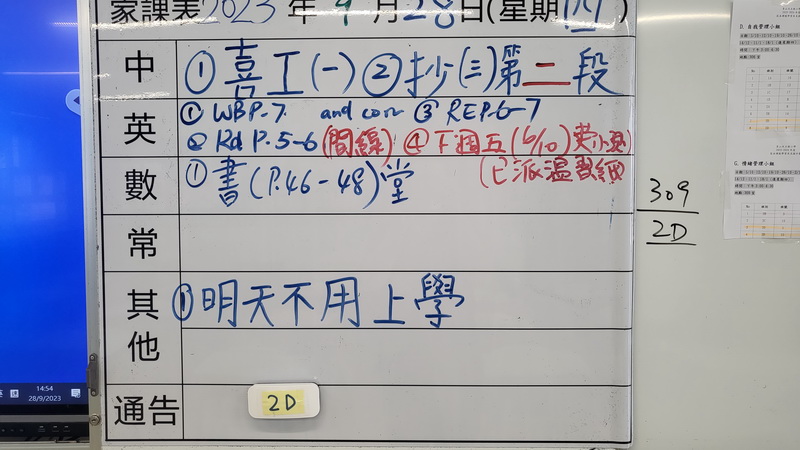 家課表2023年9月28日(星期四)
中 ①喜工(一) ②抄(三)第二段
英 ① WBP.7 and corr ③ REP.6-7
② Rd P.5-6(間線) ④下週五(6/10)
(已派溫習紙)
數 ①書(P.46-48)堂
常
其他 ①明天不用上學
通告 2D
309
2D
14:54
28/9/2023
D. 自我管理小組
G. 情緒管理小組